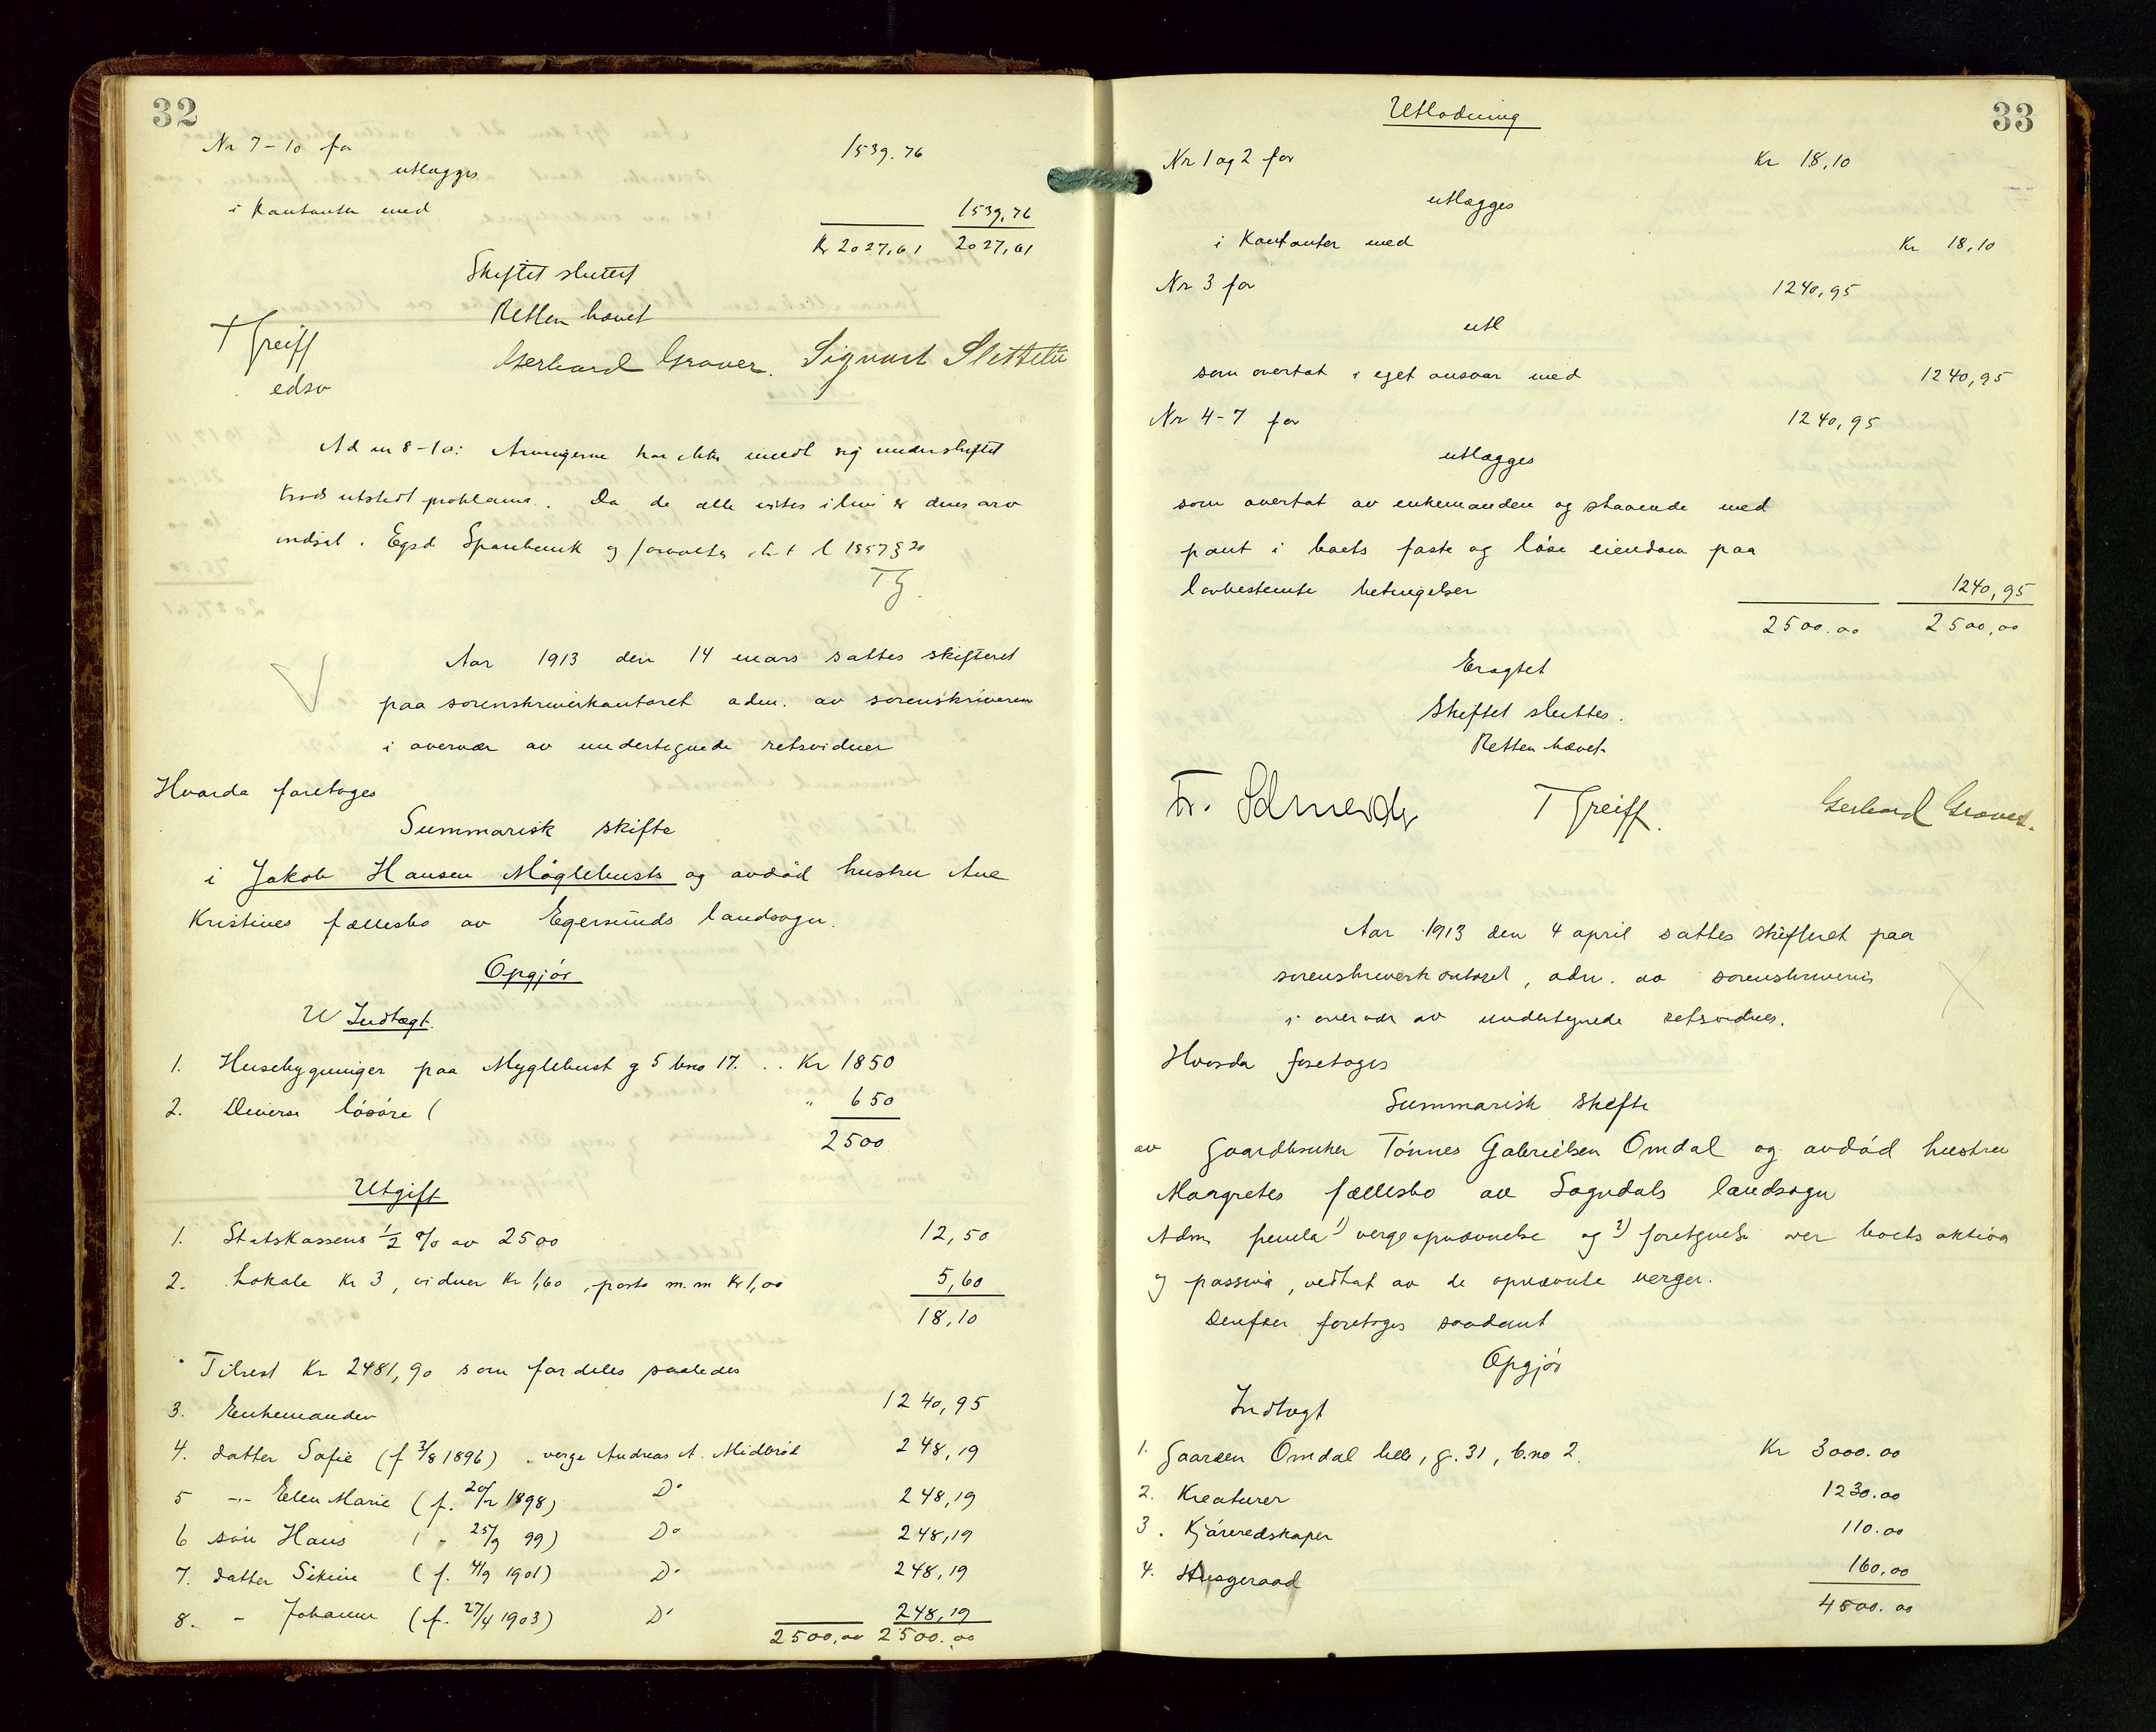 32
Nr 7-10 for 1539.76
utlægges
i Kontanter med 1539,76
Kr 2027,61 2027,61
Skiftet sluttet
Retten hævet
T Greiff Gerhard Graver. Sigvart Slettebø
edsv
Ad nr 8-10: Arvingerne har ikke meldt sig under skiftet
trods utstedt proklama. Da de alle vites ilive er deres arv
indsat i Egsd Sparebank og forvaltes iht l 1857 § 20
T G.
Aar 1913 den 14 mars sattes skifteret
paa sorenskriverkontoret adm. av sorenskriveren
i overvær av undertegnede retsvidner
Hvorda foretoges
Summarisk skifte
i Jakob Hansen Møglebusts og avdød hustru Ane
Kristines fællesbo av Egersunds landsogn.
Opgjør
Indtægt.
1. Husebygninger paa Myglebust g 5 bno 17. .. Kr 1850
2. Diverse løsøre ( " 650
2500
Utgift
1. Statskassens ½ % av 2500 12,50
2. Lokale Kr 3, vidner Kr 1,60, porto m.m Kr 1,00 5,60
18,10
Tilrest Kr 2481,90 som fordeles saaledes
3. Enkemanden 1240,95
4. datter Sofie (f 3/8 1896) . verge Andreas A. Midbrød 248,19
5 -"- Elen Marie (f. 20/2 1898) Do 248,19
6 søn Hans ( " 25/9 99) Do 248,19
7. datter Sikine (f. 4/9 1901) Do 248,19
8. - Johanne (f. 27/4 1903) Do 248,19
2500,00 2500.00
33
Utlodning
Nr 1 og 2 for Kr 18,10
utlægges
i Kontanter med Kr 18,10
Nr 3 for 1240,95
utl
som overtat i eget ansvar med 1240,95
Nr 4-7 for 1240,95
utlægges
som overtat av enkemanden og staaende med
pant i boets faste og løse eiendom paa
lovbestemte betingelser 1240,95
2500.00 2500,00
Eragtet
Skiftet sluttes.
Retten hævet
Fr. Schneider T Greiff. Gerhard Graver.
Aar 1913 den 4 april sattes skifteret paa
sorenskriverkontoret, adm. av sorenskriveren
i overvær av undertegnede retsvidner.
Hvorda foretoges
Summarisk Skifte
av Gaardbruker Tønnes Gabrielsen Omdal og avdød hustru
Margretes fællesbo av Sogndals landsogn
Adm fremla 1) vergeopnævnelse og 2) fortegnelse over boets aktiva
og passiva, vedtat av de opnævnte verger.
Derefter foretoges saadant
Opgjør
Indtægt
1. Gaarden Omdal lille, g. 31, b.no 2. Kr 3000.00
2. Kreaturer 1230.00
3. Kjøreredskaper 110.00
4. Husgeraad 160,00
4500.00